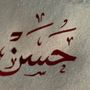 حَسَنْ